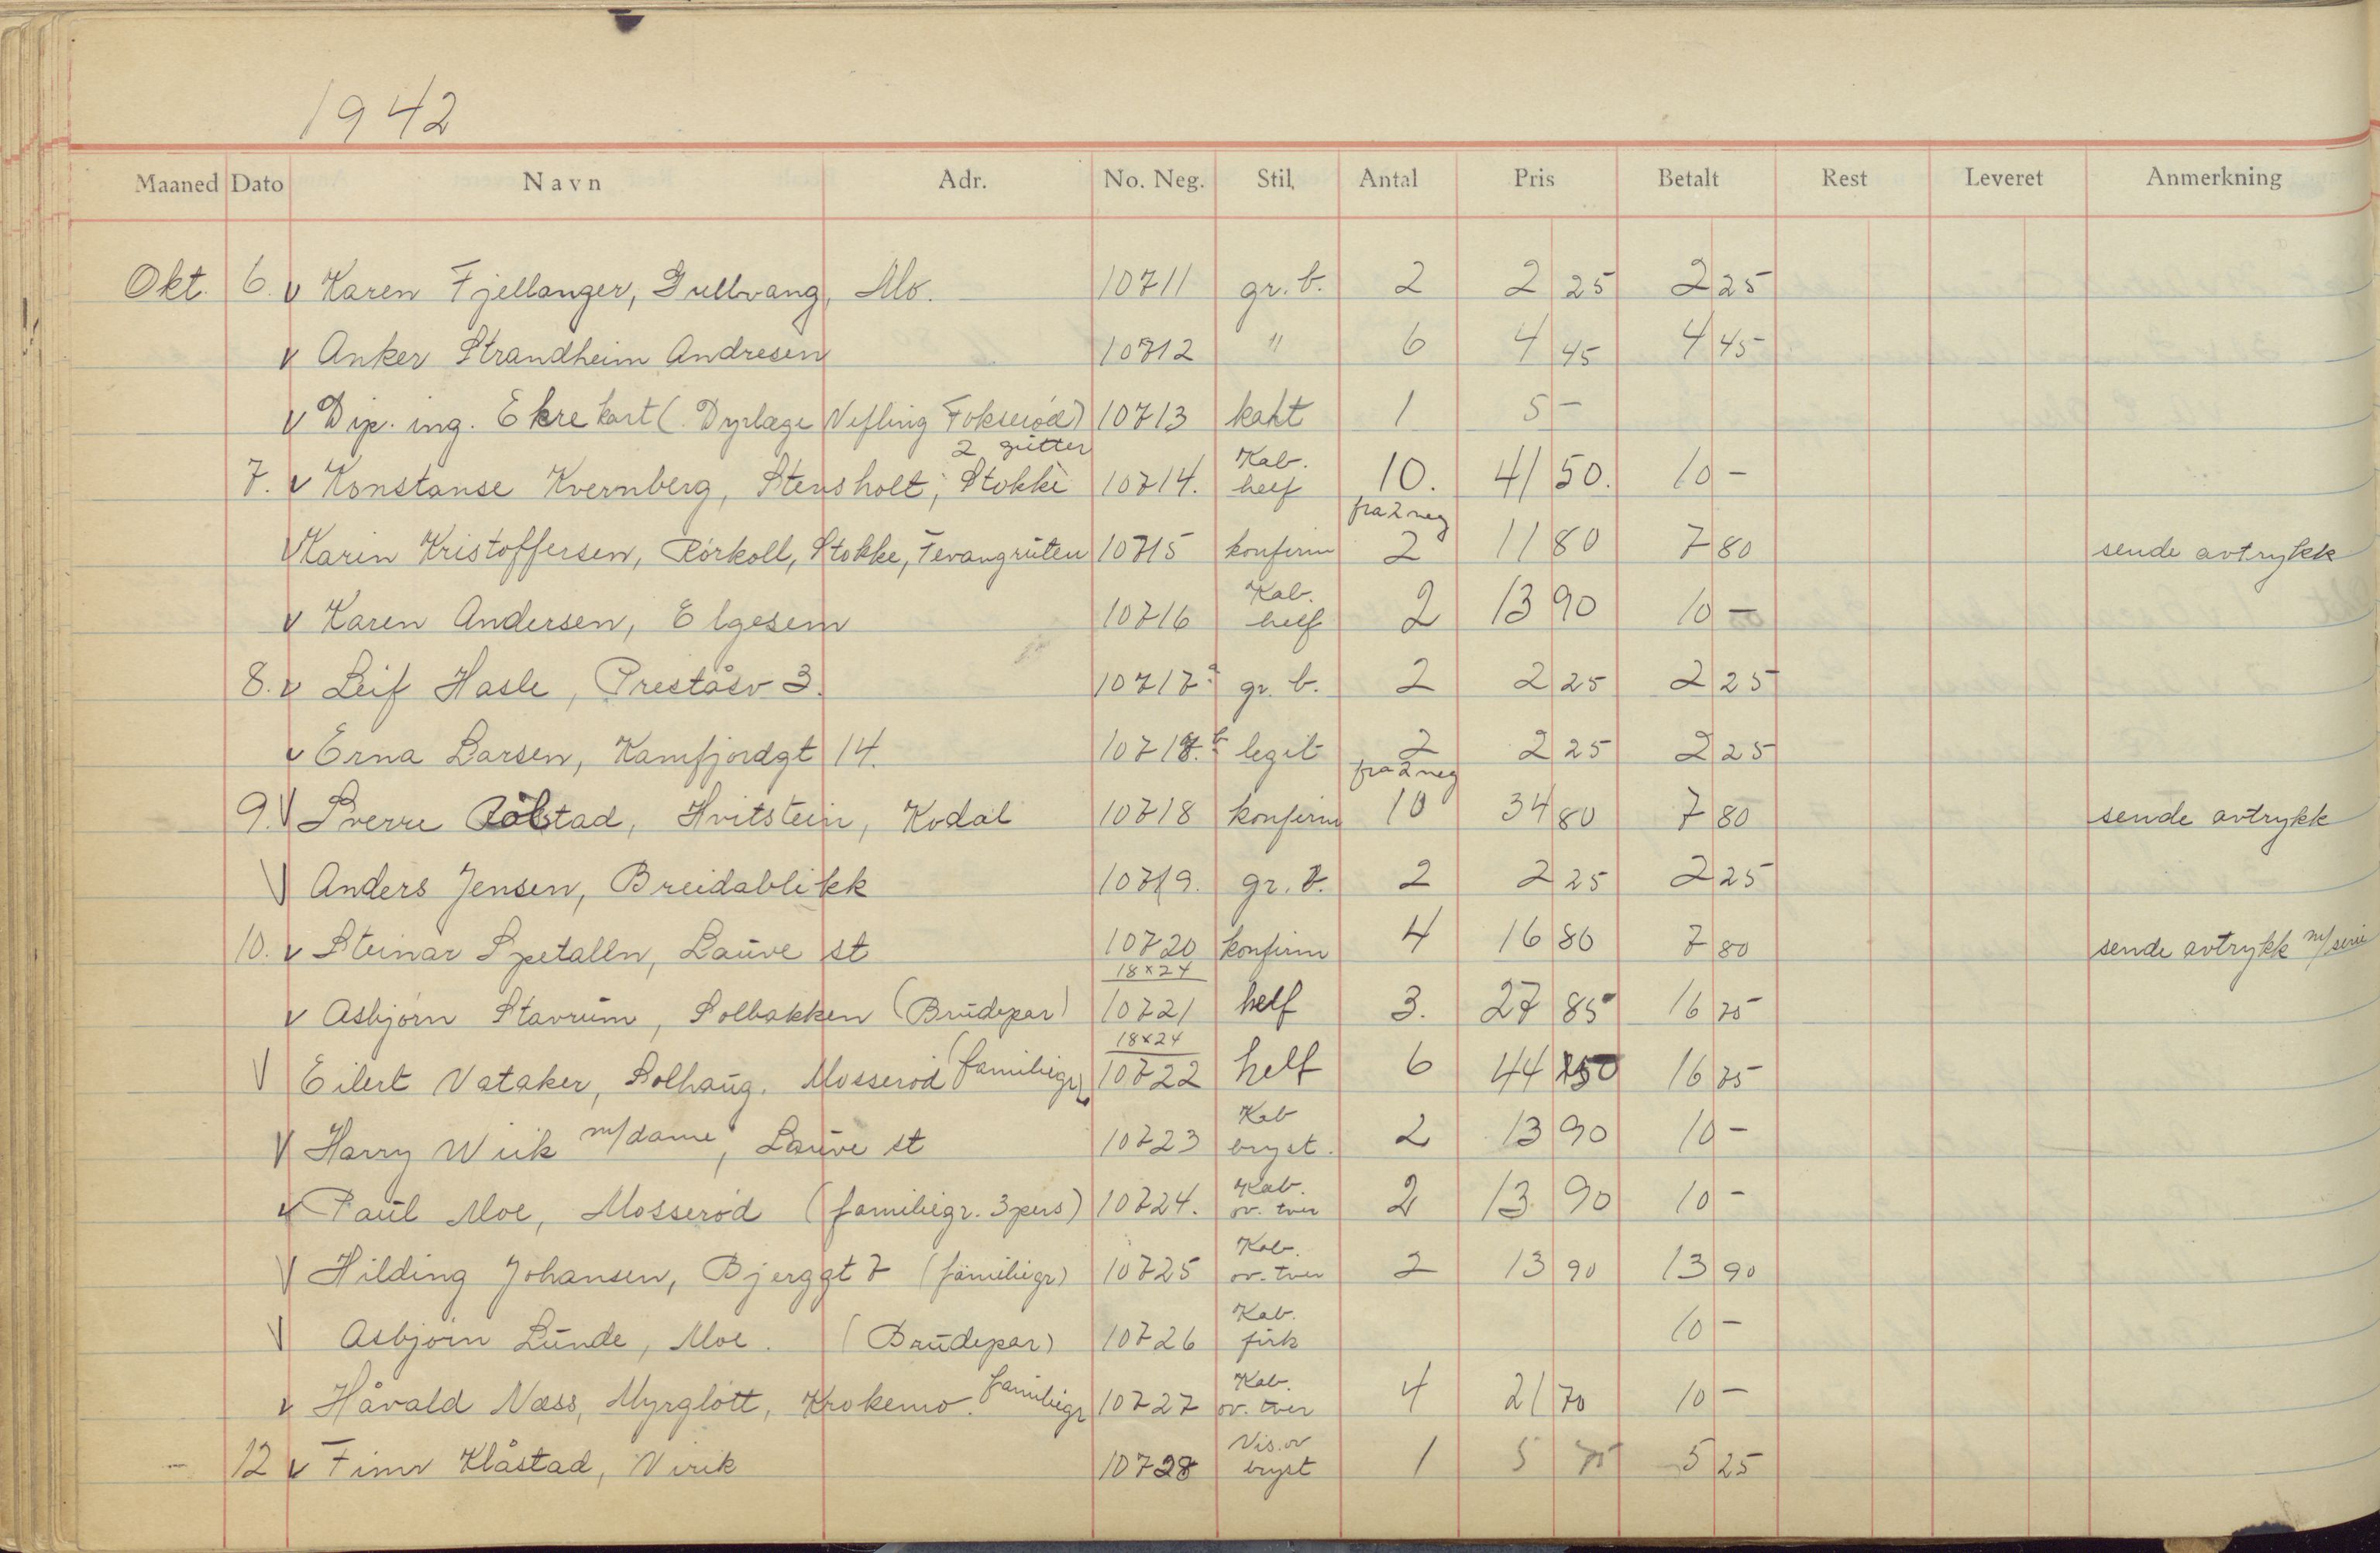 1942
Maaned Dato Navn Adr. No. Neg. Stil. Antal Pris Betalt Rest Leveret Anmerkning
Okt. 6. v Karen Fjellanger, Gullvang, Mo. 10711 gr. b. 2 2 25 2 25
v Anker Strandheim Andresen 10712 " 6 4 45 4 45
v Dip. ing. Ekre kart (Dyrlæge Nefling Fokserød) 10713 kakt 1 5 –
7. v Konstanse Kvernberg, Stensholt, Stokke 2 gutter 10714. Kab. helf 10. 41 50. 10 –
v Karin Kristoffersen, Rørkoll, Stokke, Tevangruten 10715 konfirm fra 2 neg 2 11 80 7 80 sende avtrykk
v Karen Andersen, Elgesem 10716 Kab. helf 2 13 90 10 –
8. v Leif Hasle, Preståsv 3. 10717 a gr. b. 2 2 25 2 25
v Erna Larsen, Kamfjordgt 14. 10717 b legit 2 2 25 2 25
9. v Sverre Rølstad, Hvitstein, Kodal 10718 konfirm fra 2 neg 10 34 80 7 80 sende avtrykk
v Anders Jensen, Breidablikk 10719. gr. b. 2 2 25 2 25
10. v Steinar Spetalen, Lauve st 10720 konfirm 4 16 80 7 80 sende avtrykk m/serie
v Asbjørn Stavrum, Solbakken (Brudepar) 18x24 10721 helf 3. 27 85 16 75
v Eilert Vataker, Solhaug. Mosserød (familiegr) 18x24 10722 helf 6 44 50 16 75
v Harry Wiik m/dame, Lauve st 10723 Kab bryst. 2 13 90 10 –
v Paul Moe, Mosserød (familiegr. 3 pers) 10724. Kab. ov. tver 2 13 90 10 –
v Hilding Johansen, Bjerggt 7 (familiegr) 10725 Kab. ov. tver 2 13 90 13 90
v Asbjørn Lunde, Moe. (Brudepar) 10726 Kab. firk 10 –
v Håvald Næss, Myrglott, Krokemo. familiegr 10727 Kab. ov. tver 4 21 70 10 –
12 v Finn Klåstad, Virik 10728 Vis. ov bryst 1 5 5 25